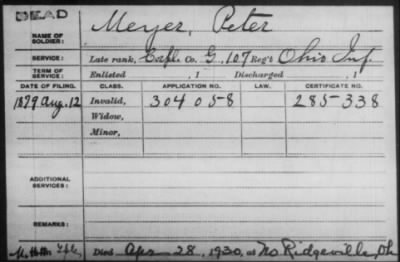 DEAD
Meyer, Peter
NAME OF SOLDIER:
SERVICE: Late rank, Corpl. Co. G, 107 Reg't Ohio Inf.
TERM OF SERVICE: Enlisted , 1 Discharged , 1
DATE OF FILING. CLASS. APPLICATION NO. LAW. CERTIFICATE NO.
1879 Aug. 12 Invalid, 304058 285338
Widow,
Minor,
ADDITIONAL SERVICES:
REMARKS:
Died Apr 28, 1930, at No. Ridgeville, Oh